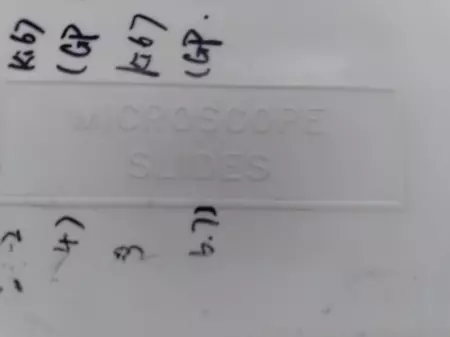 Ki67
(GP
Ki67
(GP.
MICROSCOPE
SLIDES
4)
3